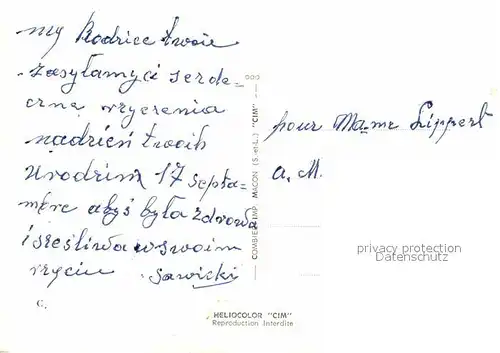 my Rodzice twoie
zasyłamyci serde=
czne wrzczenia
nadzień twoih
Urodzin 17 septa=
mbre abyś była zdrowa
i sześliwa wswoim
rzyciu. Sawicki
C.
COMBIER IMP. MACON (S.-et-L.) "CIM"
pour Mame Lippert
a. M.
privacy protection
Datenschutz
HELIOCOLOR "CIM"
Reproduction Interdite